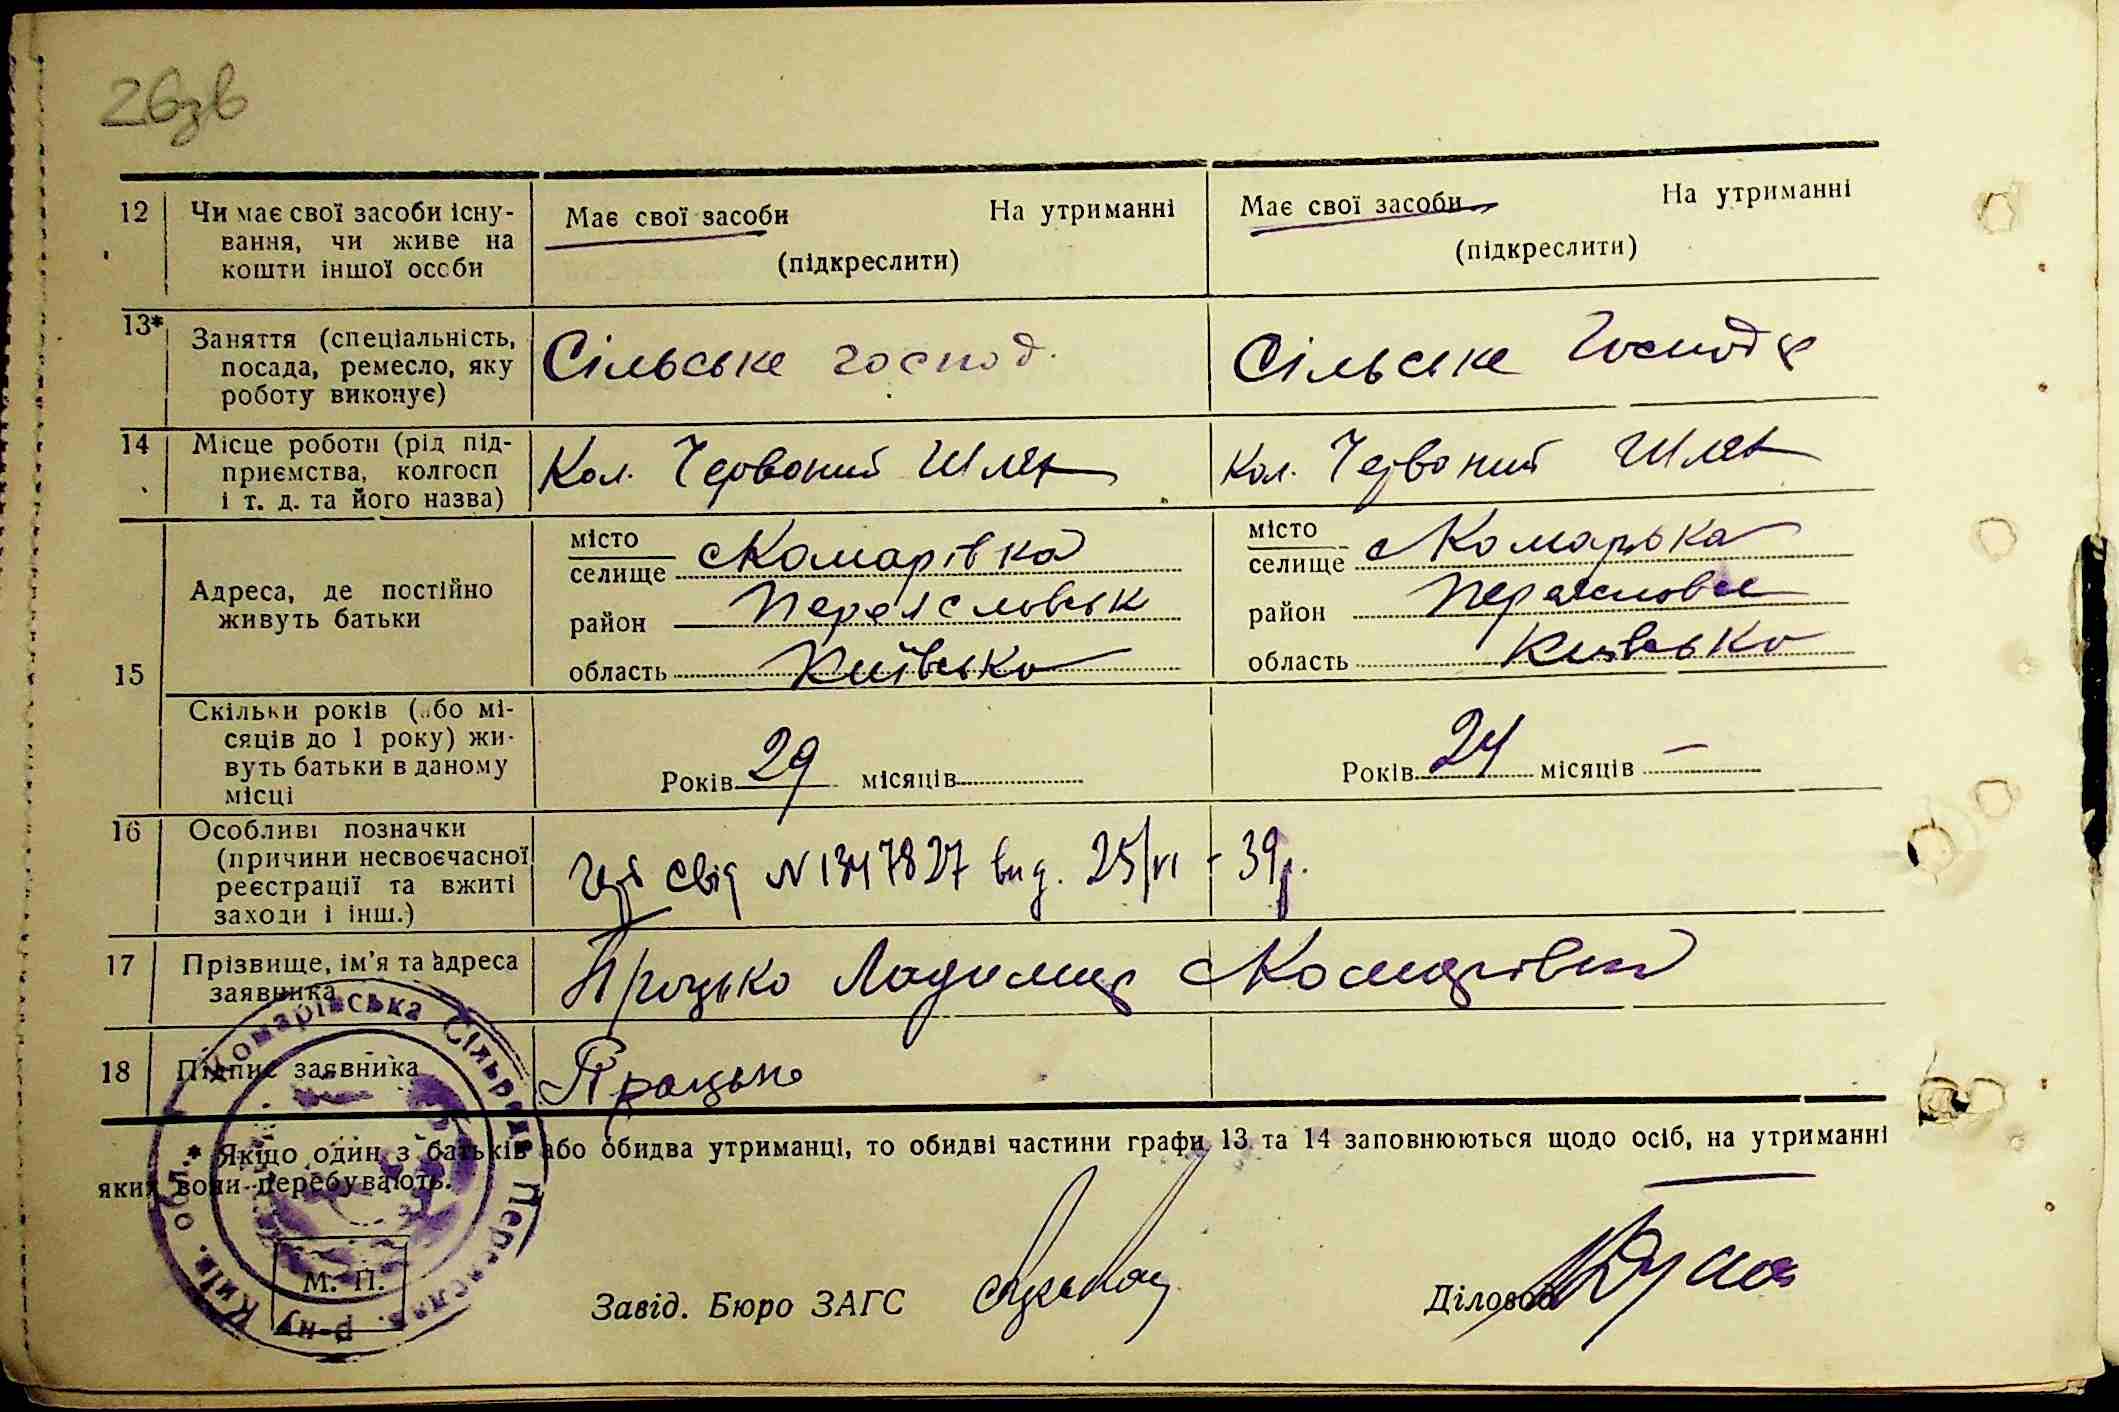 26зв
12 Чи має свої засоби існу- Має свої засоби На утриманні Має свої засоби На утриманні
вання, чи живе на
кошти іншої особи (підкреслити) (підкреслити)
13* Заняття (спеціальність, Сільське господ. Сільське Господ
посада, ремесло, яку
роботу виконує)
14 Місце роботи (рід під- Кол. Червоний Шлях Кол. Червоний Шлях
приємства, колгосп
і т. д. та його назва)
15 Адреса, де постійно
живуть батьки
місто
селище с Комарівка
район Переясловськ
область Київсько
місто
селище с Комарівка
район
область Київсько
Скільки років (або мі-
сяців до 1 року) жи-
вуть батьки в даному
місці
Років 29 місяців Років 24 місяців —
16 Особливі позначки
(причини несвоєчасної
реєстрації та вжиті
заходи і інш.)
свід N 1347827 вид. 25/VI - 39р.
17 Прізвище, ім'я та адреса Процько с Комарівки
заявника
18 Підпис заявника Процько
* Якщо один з батьків або обидва утриманці, то обидві частини графи 13 та 14 заповнюються щодо осіб, на утриманні
яких вони перебувають.
Комарівська Сільрада Переяслав. р-ну Київ. обл.
М. П.
Завід. Бюро ЗАГС Діловод